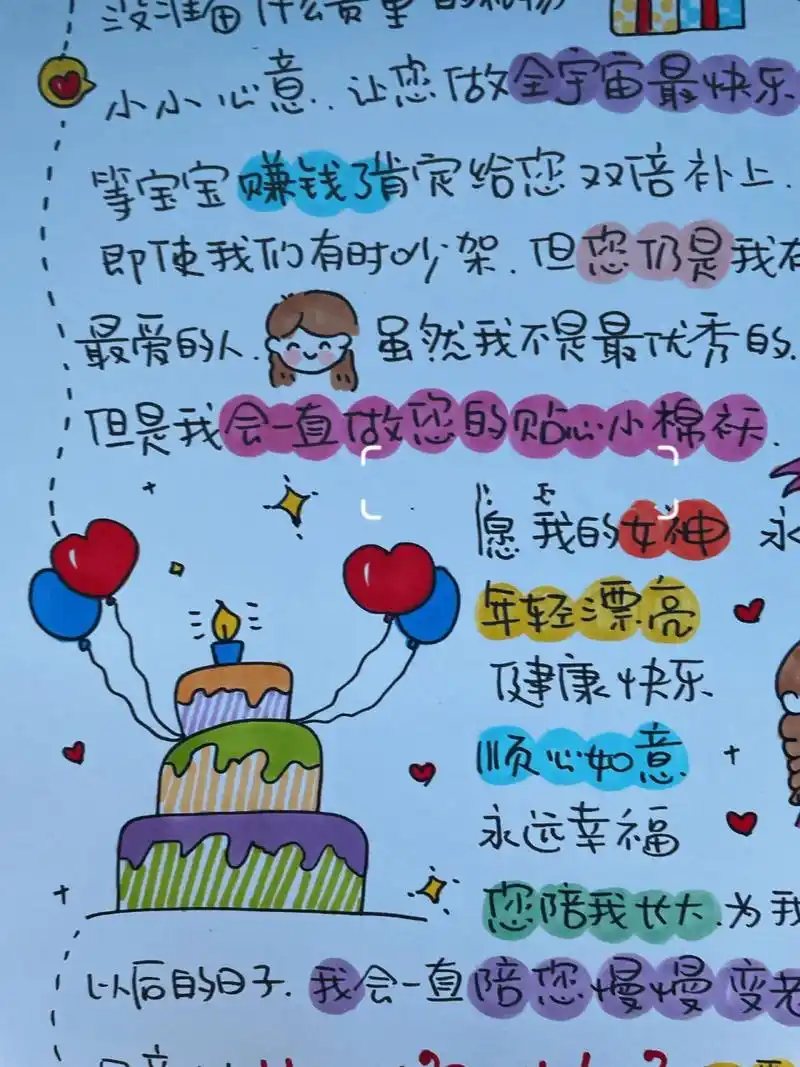 没准备什么贵重的礼物
小小心意.让您做全宇宙最快乐
等宝宝赚钱了肯定给您双倍补上.
即使我们有时吵架.但您仍是我
最爱的人.虽然我不是最优秀的.
但是我会一直做您的贴心小棉袄.
愿我的女神永
年轻漂亮
健康快乐
顺心如意
永远幸福
您陪我长大.为我
以后的日子.我会一直陪您慢慢变老